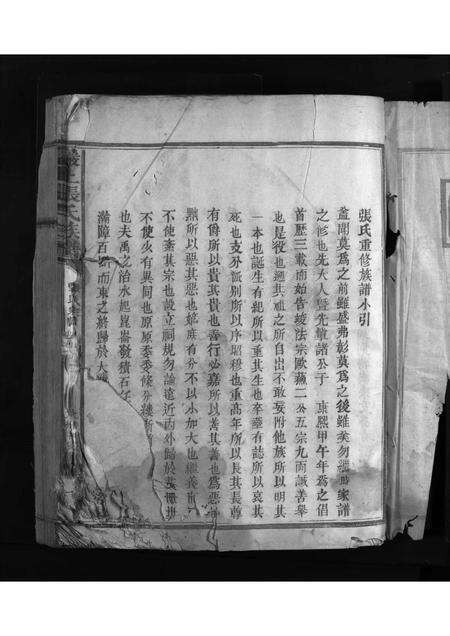 張氏重修族譜小引
蓋聞莫為之前雖盛弗彭莫為之後雖美勿繼 家譜
之修也先大人暨先輩諸公于 康熙甲午年為之倡
首歷三載而始告竣法宗歐蘇二公五宗九而誠善舉
也是役也遡其祖之所自出不敢妄附他族所以明其
一本也誕生有紀所以重其生也卒塟有誌所以哀其
死也支分派別所以序昭穆也重高年所以長其長尊
有爵所以貴其貴也善行必嘉所以善其善也爲惡
黜所以惡其惡也嫡庶有分不以小加大也繼養
不使紊其宗也設立祠規勿論遠近內外歸於
不使少有異同也原原委委條分縷
也夫禹之治水起崑崙發積石
瀚障百川而東之終歸於大
張氏族譜